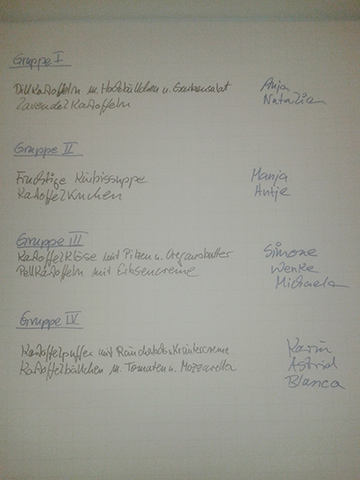 Gruppe I
Dillkartoffeln m. Hackbällchen u. Gurkensalat Anja
Lavendelkartoffeln Natalia
Gruppe II
Fruchtige Kürbissuppe Manja
Kartoffelkuchen Antje
Gruppe III
Kartoffelklöse mit Pilzen u. Oreganobutter Simone
Pellkartoffeln mit Erbsencreme Wenke
Michaela
Gruppe IV
Kartoffelpuffer mit Räucherlachs u. Kräutercreme Karin
Kartoffelbällchen m. Tomaten u. Mozzarella Astrid
Blanca